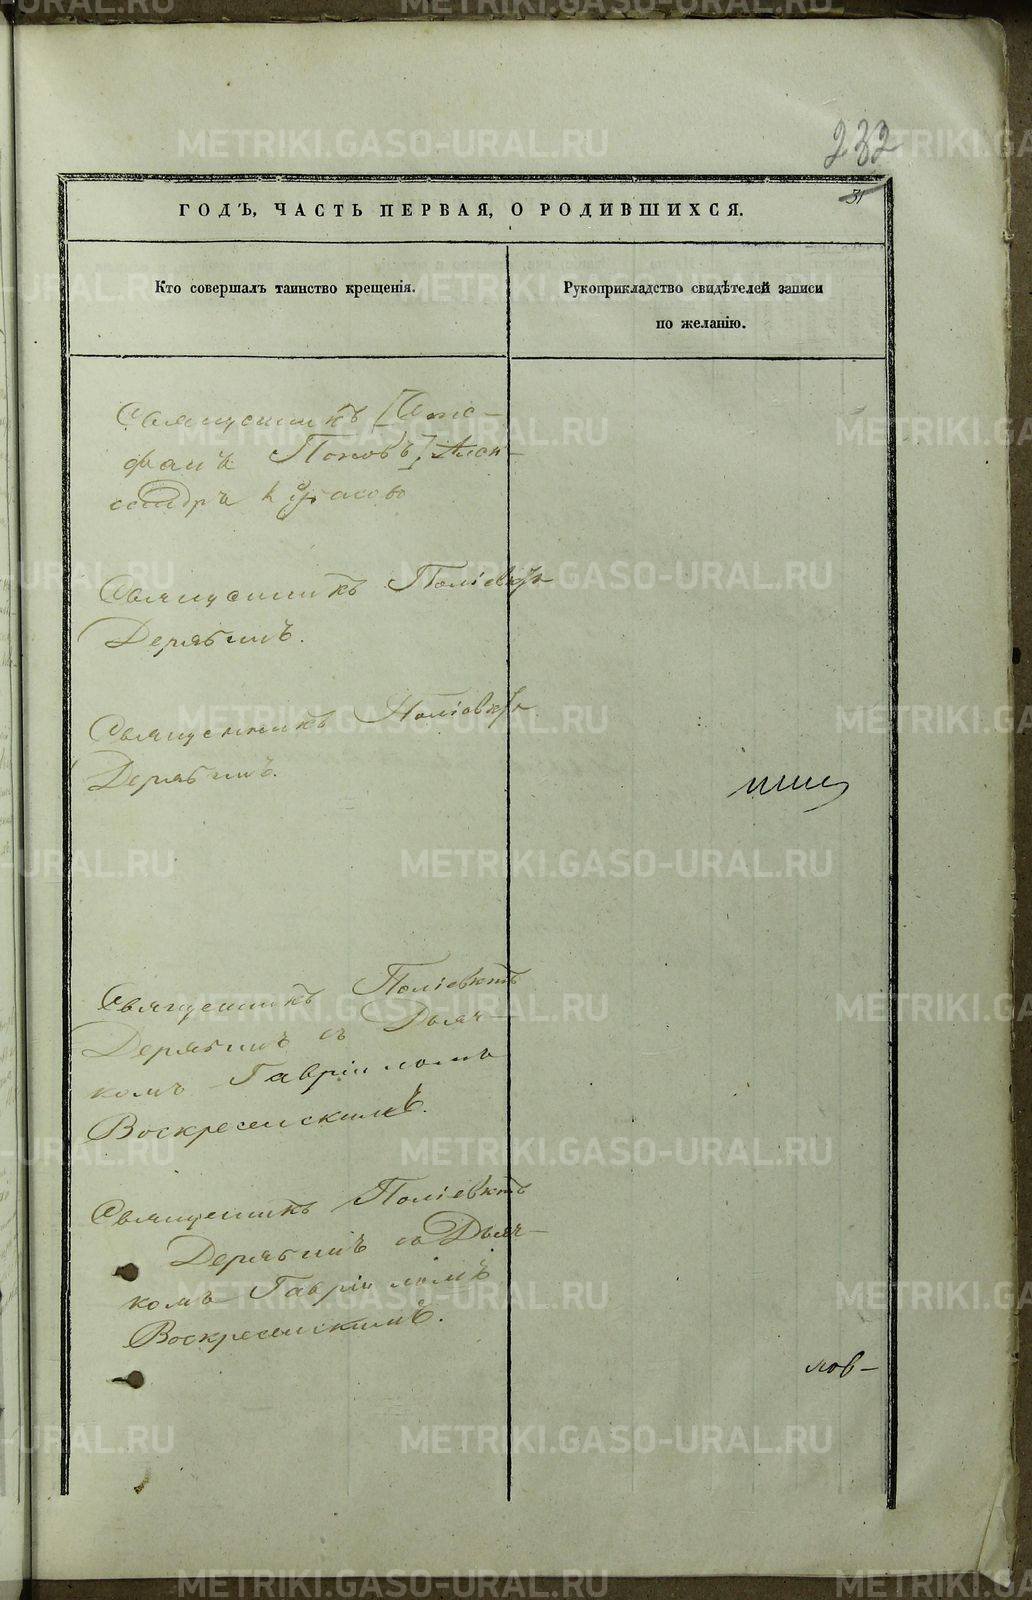 232
31
ГОДЪ, ЧАСТЬ ПЕРВАЯ, О РОДИВШИХСЯ.
Кто совершалъ таинство крещенія.
Рукоприкладство свидѣтелей записи
по желанію.
Священникъ
Поповъ] Алек-
сандръ
Священникъ Поліевктъ
Дерябинъ.
Священникъ Поліевктъ
Дерябинъ.
Священникъ Поліевктъ
Дерябинъ съ Дьяч-
комъ Гавріиломъ
Воскресенскимъ.
Священникъ Поліевктъ
Дерябинъ съ Дьяч-
комъ Гавріиломъ
Воскресенскимъ.
лов-
METRIKI.GASO-URAL.RU